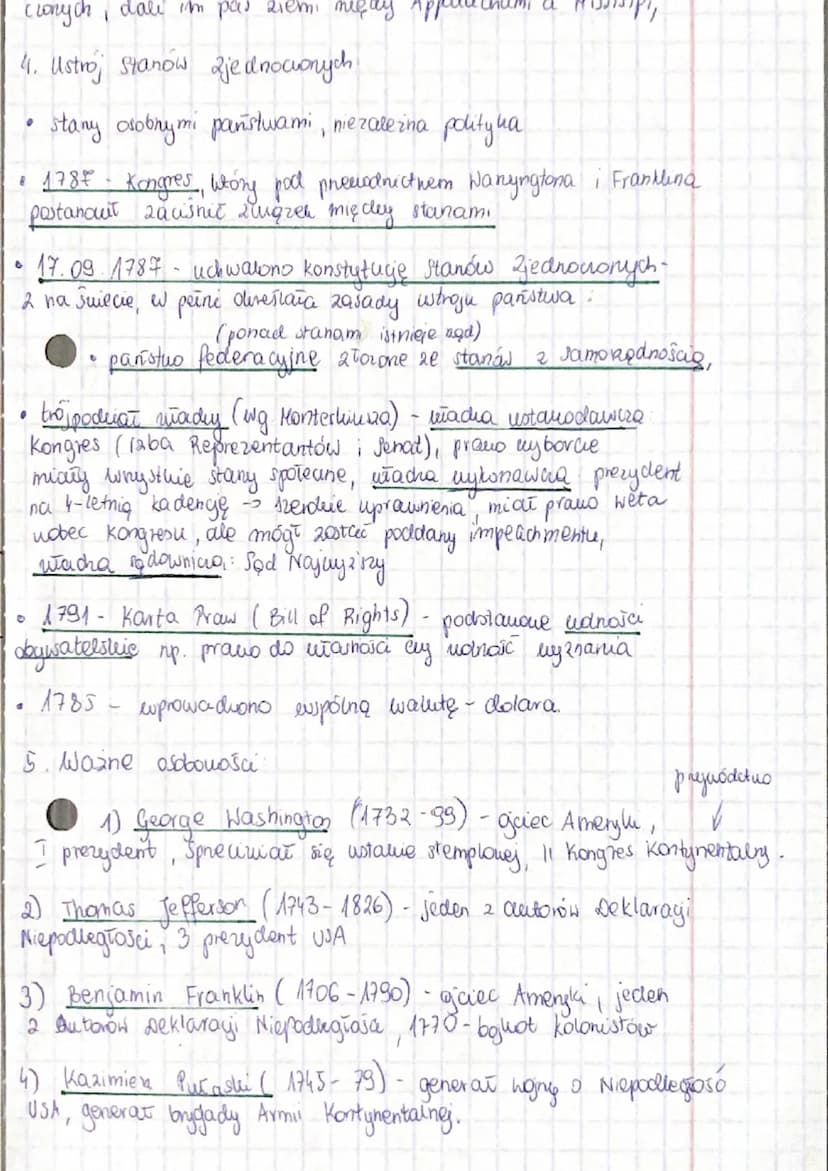 czonych, dali im pas ziemi między Appalachami a Missisipi,
4. Ustrój Stanów Zjednoczonych
• stany osobnymi państwami, niezależna polityka
• 1787 - Kongres, który pod przewodnictwem Waszyngtona i Franklina
postanowił zacieśnić związek między stanami
• 17.09.1787 - uchwalono konstytucję Stanów Zjednoczonych -
2 na świecie, w pełni określała zasady ustroju państwa:
(ponad stanami istnieje rząd)
• państwo federacyjne złożone ze stanów z samorządnością,
• trójpodział władzy (wg Monteskiusza) - władza ustawodawcza:
Kongres (Izba Reprezentantów i Senat), prawo wyborcze
miały wszystkie stany społeczne, władza wykonawcza: prezydent
na 4-letnią kadencję → szerokie uprawnienia, miał prawo weta
wobec Kongresu, ale mógł zostać poddany impeachmentu,
władza sądownicza: Sąd Najwyższy
• 1791 - Karta Praw (Bill of Rights) - podstawowe wolności
obywatelskie np. prawo do własności czy wolność wyznania
• 1785 - wprowadzono wspólną walutę - dolara.
5. Ważne osobowości
przywództwo
1) George Washington (1732-99) - ojciec Ameryki, ↓
I prezydent, sprzeciwiał się ustawie stemplowej, II Kongres Kontynentalny.
2) Thomas Jefferson (1743-1826) - jeden z autorów Deklaracji
Niepodległości, 3 prezydent USA
3) Benjamin Franklin (1706-1790) - ojciec Ameryki, jeden
z autorów Deklaracji Niepodległości, 1770 - bojkot kolonistów
4) Kazimierz Pułaski (1745-79) - generał wojny o Niepodległość
USA, generał brygady Armii Kontynentalnej.